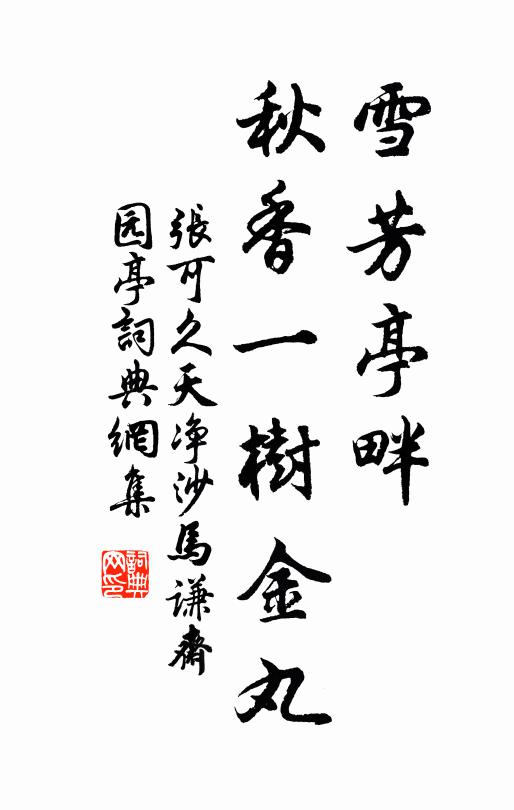 雪芳亭畔
秋香一樹金丸
張可久天净沙馬謙齋
园亭詞典網集
詞典网印